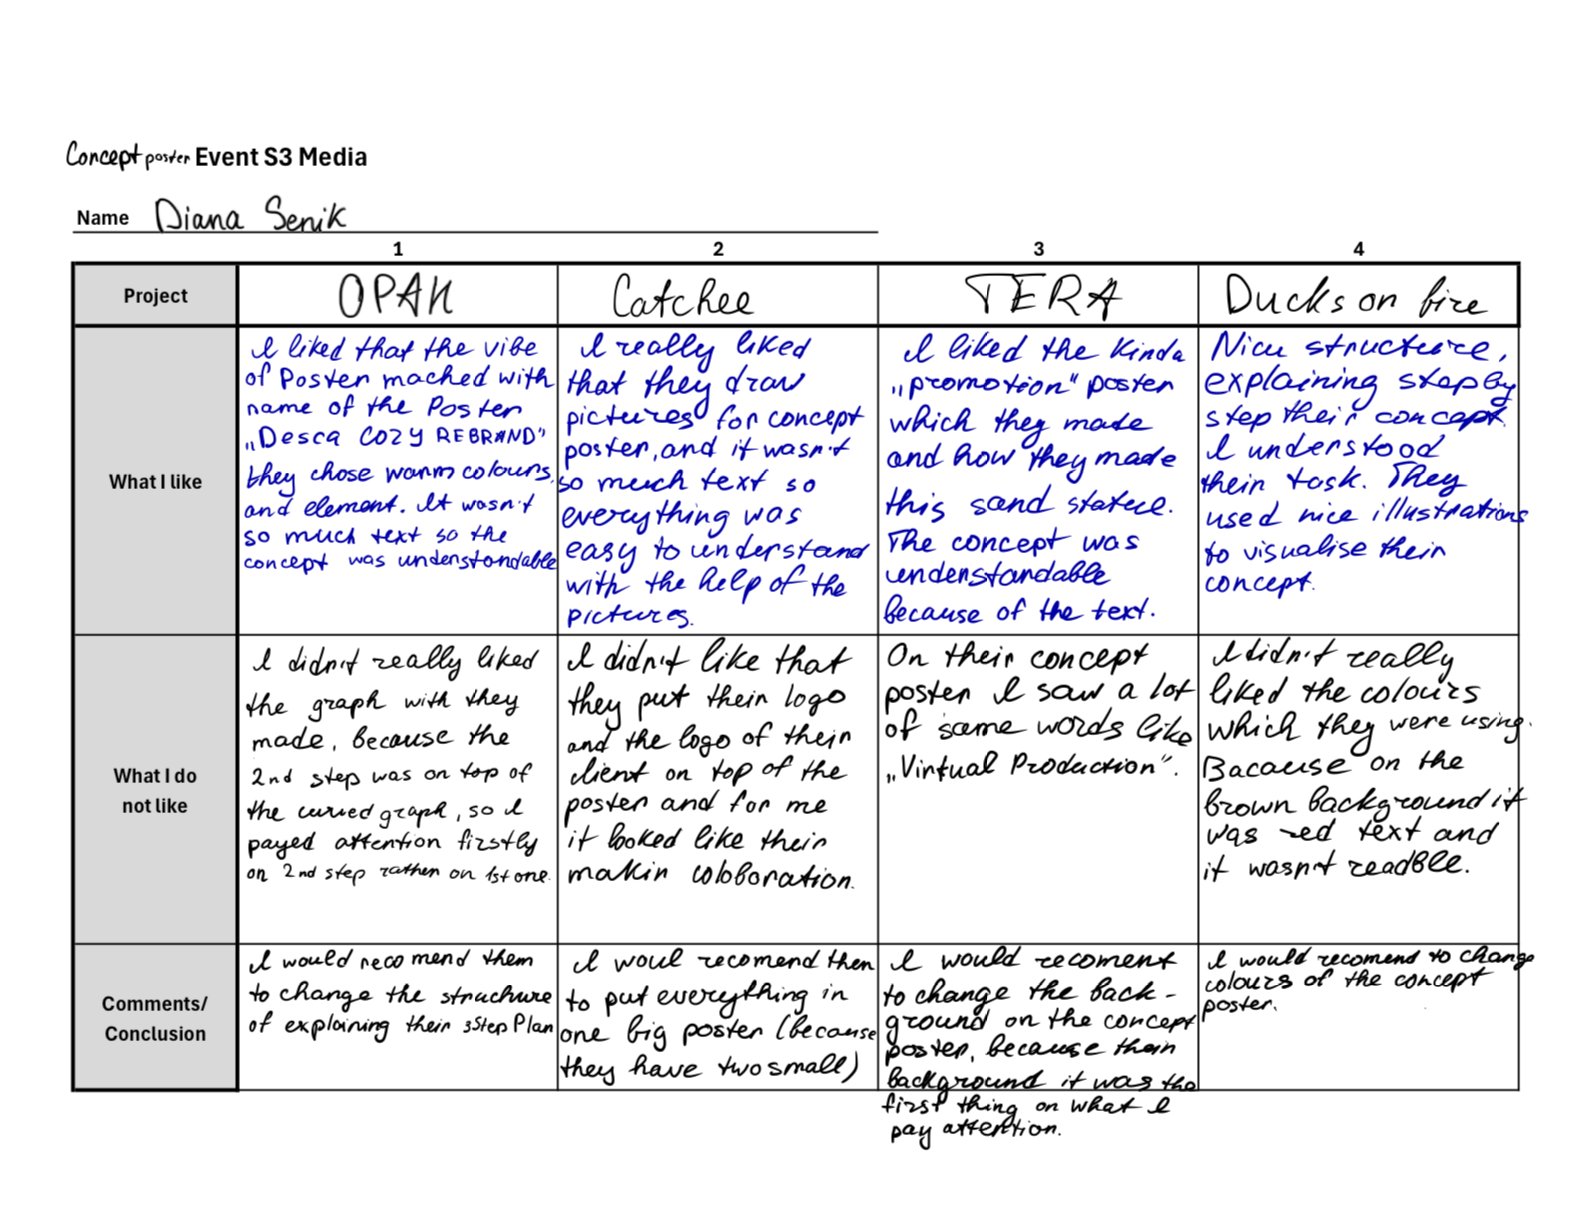 Concept poster Event S3 Media
Name Diana Senik
1 2 3 4
Project
OPAK
Catchee
TERA
Ducks on fire
What I like
I liked that the vibe
of Poster mached with
name of the Poster
„Desca COZY REBRAND"
they chose warm colours,
and element. It wasn't
so much text so the
concept was understandable
I really liked
that they draw
pictures for concept
poster, and it wasn't
so much text so
everything was
easy to understand
with the help of the
pictures.
I liked the kinda
„promotion" poster
which they made
and how they made
this sand statue.
The concept was
understandable
because of the text.
Nice structure,
explaining step by
step their concept.
I understood
their task. They
used nice illustrations
to visualise their
concept.
What I do
not like
I didn't really liked
the graph with they
made, because the
2nd step was on top of
the curved graph, so I
payed attention firstly
on 2nd step rather on 1st one.
I didn't like that
they put their logo
and the logo of their
client on top of the
poster and for me
it looked like their
makin coloboration.
On their concept
poster I saw a lot
of same words like
„Virtual Production".
I didn't really
liked the colours
which they were using.
Bacause on the
brown background it
was red text and
it wasn't readble.
Comments/
Conclusion
I would recomend them
to change the struchure
of explaining their 3 Step Plan
I woul recomend then
to put everything in
one big poster (because
they have two small)
I would recoment
to change the back-
ground on the concept
poster, because their
background it was the
first thing on what I
pay attention.
I would recomend to change
colours of the concept
poster.